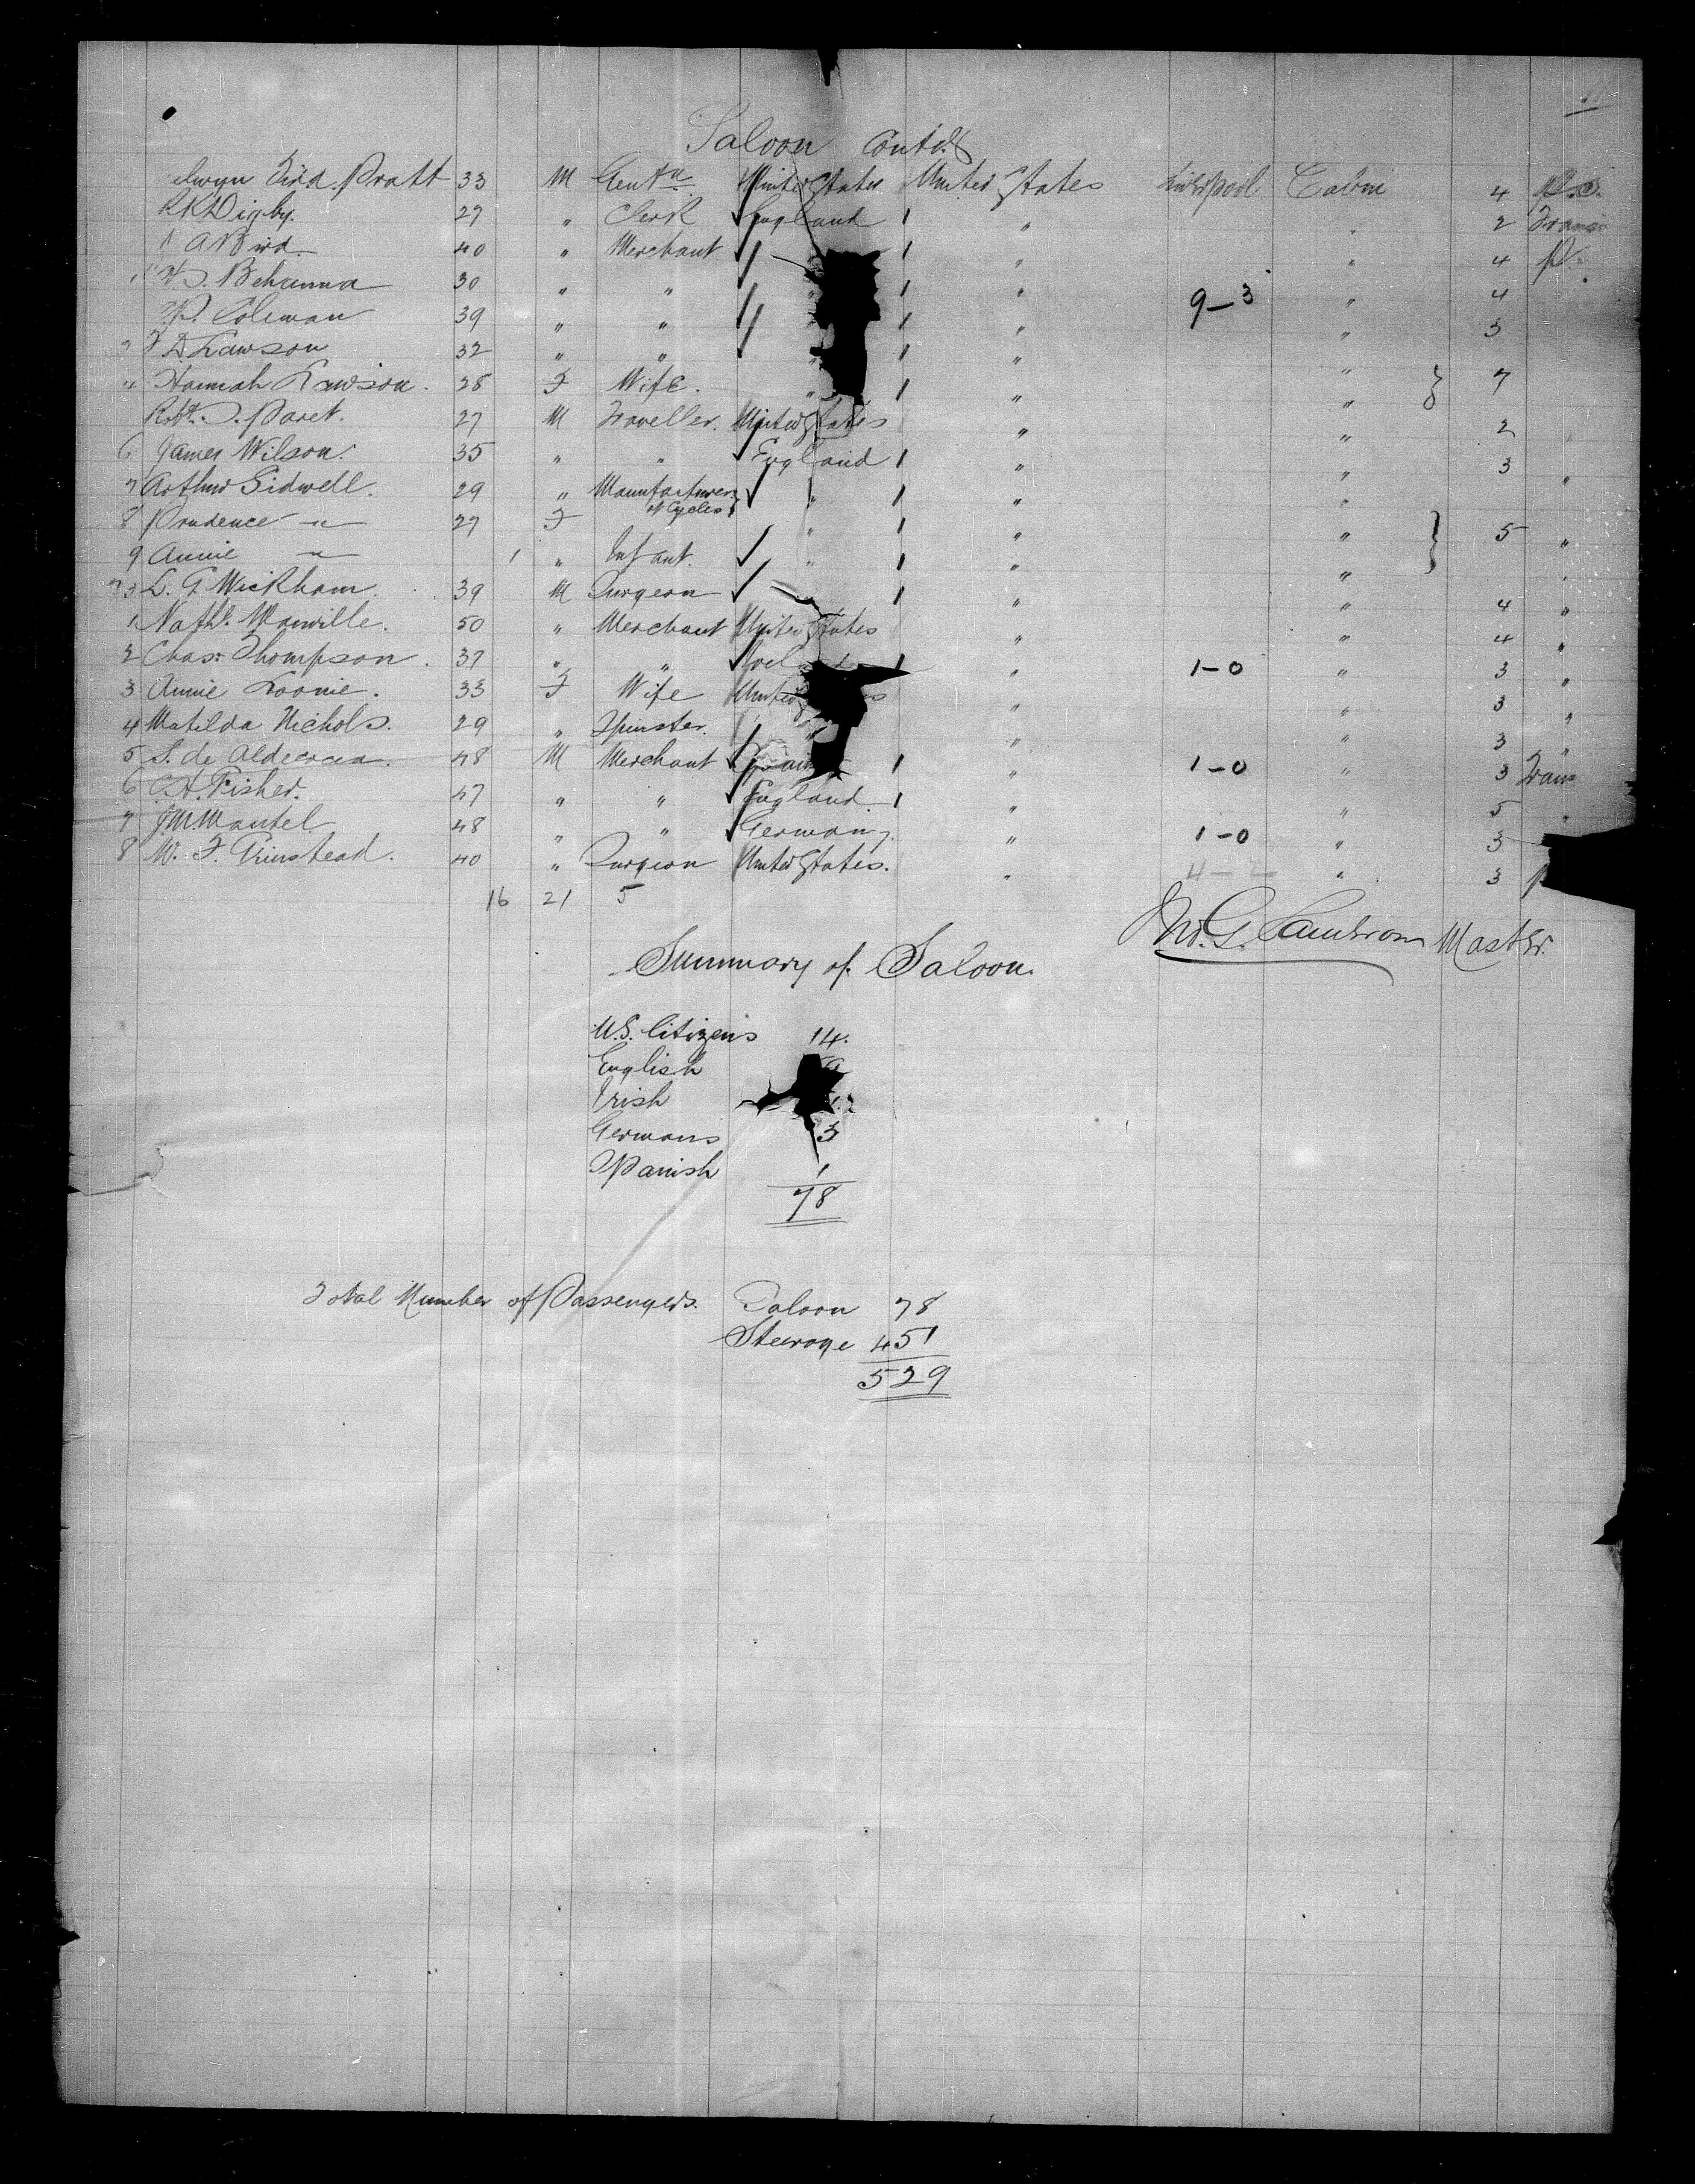 Saloon Contd.
Pratt 33 M Gentn United States United States Liverpool Cabin 4
Digby. 27 " Clerk England 1 " " 2
A Bird 40 " Merchant 1 " " 4
Behanna 30 " " " 1 " 9-3 " 4
Coleman 39 " " " 1 " " 3
Lawson 32 " " " 1 " "
" Hannah Lawson. 28 F Wife. " 1 " " } 7
Robt. S. Paret. 27 M Traveller. United States " " 2
6 James Wilson. 35 " " England 1 " " 3
7 Arthur Sidwell. 29 " Manufacturer of Cycles " 1 " " "
8 Prudence " 27 F " 1 " " } 5 "
9 Annie " 1 " Infant. " 1 " "
L. G. Wickham. 39 M Surgeon 1 " " 4 "
1 Nathl. Manville. 50 " Merchant United States " " 4 "
2 Chas. Thompson. 37 " " 1 " 1-0 " 3 "
3 Annie Loonie. 33 F Wife United " " 3 "
4 Matilda Nichols. 29 " Spinster. " " " 3 "
5 S. de 48 M Merchant 1 " 1-0 " 3 Trans
6 Fisher. 47 " " England. 1 " " 5 "
7 J.M. Mantel 48 " " Germany. " 1-0 " 3
8 W. F. Grinstead. 40 " Surgeon United States. " " 3
16 21 5
Jno. G. Cameron Master.
Summary of Saloon.
U.S. Citizens 14.
English
Irish
Germans 3
Spanish 1
78
Total Number of Passengers. Saloon 78
Steerage 451
529